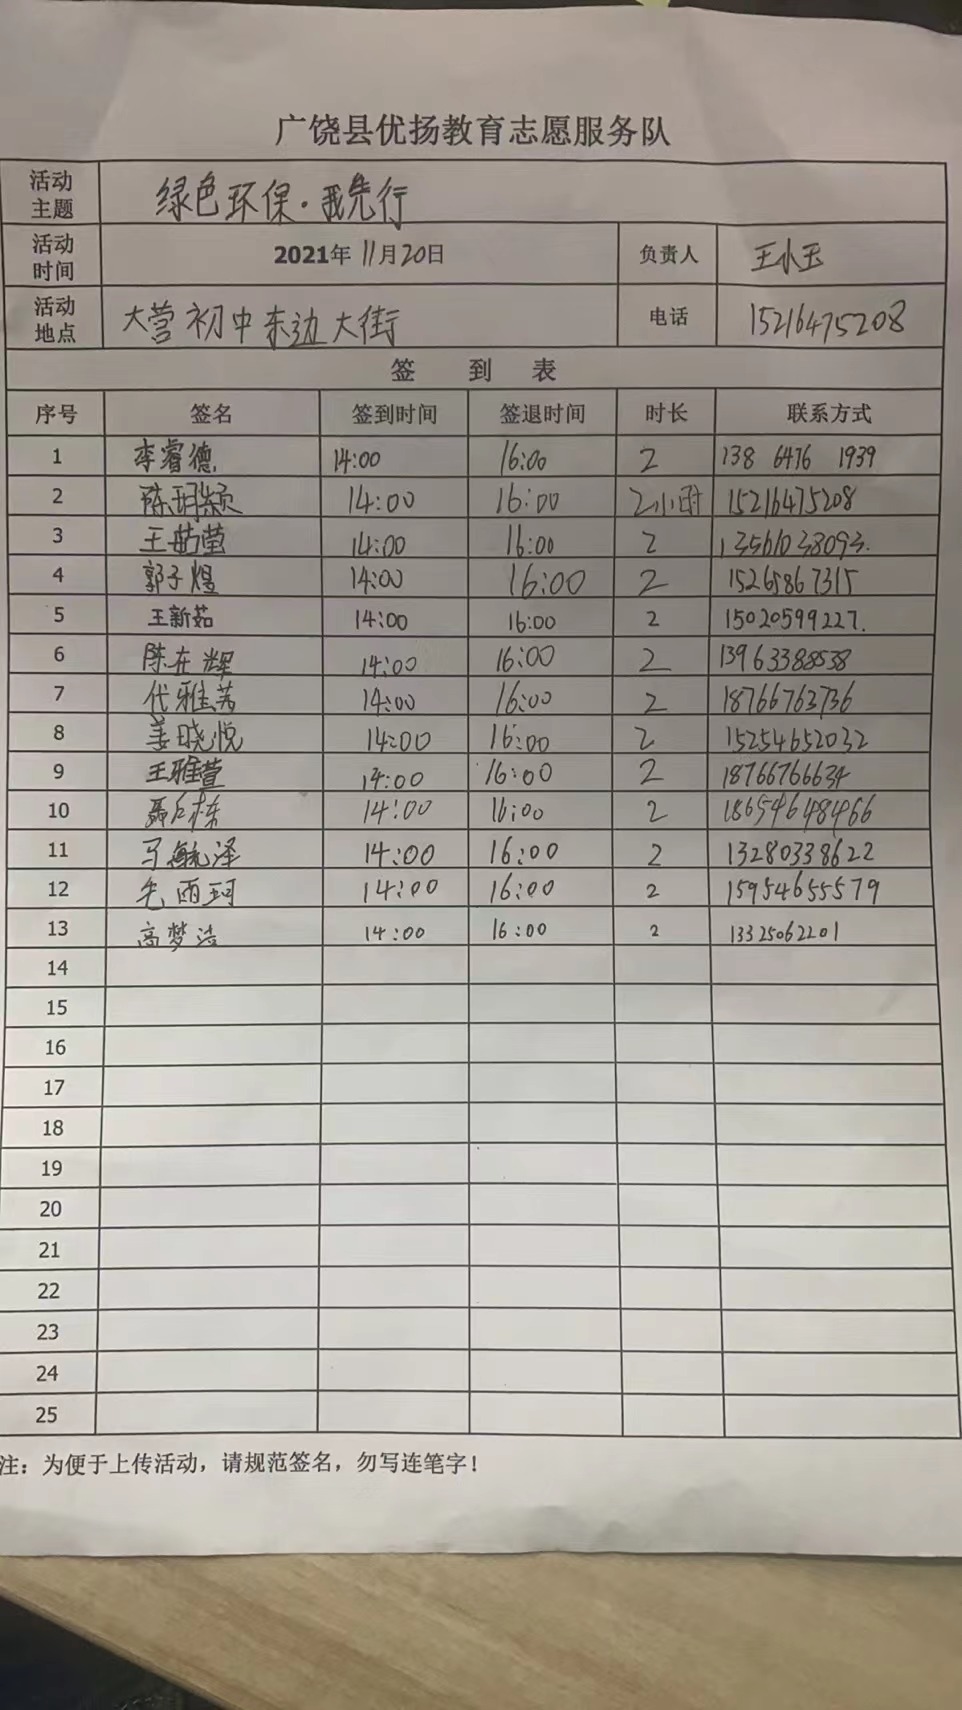 广饶县优扬教育志愿服务队
活动主题 绿色环保·我先行
活动时间 2021年11月20日 负责人 王小玉
活动地点 大营初中东边大街 电话 15216475208
签 到 表
序号 签名 签到时间 签退时间 时长 联系方式
1 李睿德 14:00 16:00 2 138 6476 1939
2 陈玥颖 14:00 16:00 2小时 15216475208
3 王茹莹 14:00 16:00 2 13561038093.
4 郭子煜 14:00 16:00 2 15265867315
5 王新茹 14:00 16:00 2 15020599227.
6 陈在辉 14:00 16:00 2 13963388538
7 代雅茜 14:00 16:00 2 18766763736
8 姜晓悦 14:00 16:00 2 15254652032
9 王雅萱 14:00 16:00 2 18766766634
10 14:00 16:00 2 18654648466
11 马毓泽 14:00 16:00 2 13280338622
12 毛雨珂 14:00 16:00 2 15954655579
13 高梦洁 14:00 16:00 2 13325062201
14
15
16
17
18
19
20
21
22
23
24
25
注：为便于上传活动，请规范签名，勿写连笔字！